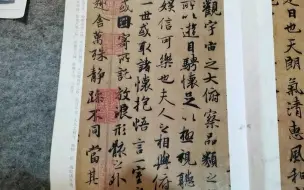 是日也天朗氣清惠風和
觀宇宙之大俯察品類之
所以遊目騁懷足以極視聽
娛信可樂也夫人之相與俯
一世或取諸懷抱悟言一室
或因寄所託放浪形骸之外
趣舍萬殊靜躁不同當其